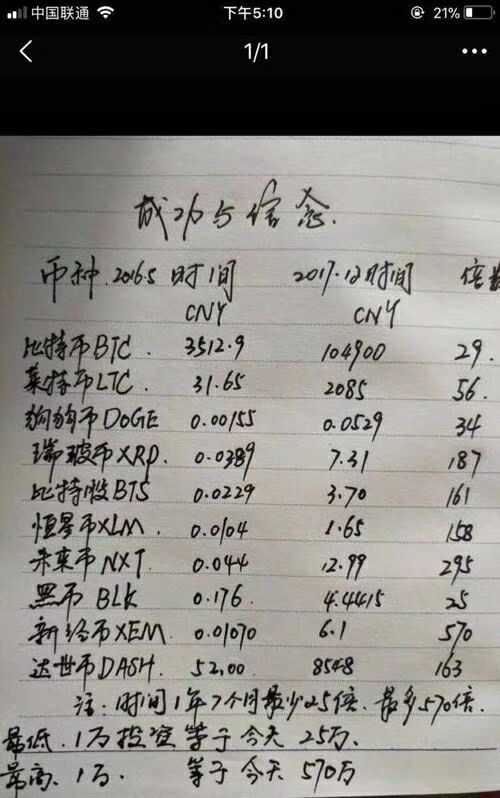 中国联通 下午5:10 21%
1/1
成功与信念.
币种 2016.5 时间 2017.12时间 倍数
CNY CNY
比特币BTC. 3512.9 104900 29.
莱特币LTC. 31.65 2085 56.
狗狗币DOGE 0.00155 0.0529 34
瑞玻币XRP. 0.0389 7.31 187
比特股BTS 0.0229 3.70 161
恒星币XLM. 0.0104 1.65 158
未来币NXT. 0.044 12.99 295
黑币 BLK 0.176. 4.4415 25
新经币XEM. 0.01070 6.1 570
达世币DASH. 52.00 8548 163
注: 时间1年7个月最少25倍. 最多570倍.
最低. 1万投资等于今天25万.
最高. 1万. 等于今天570万